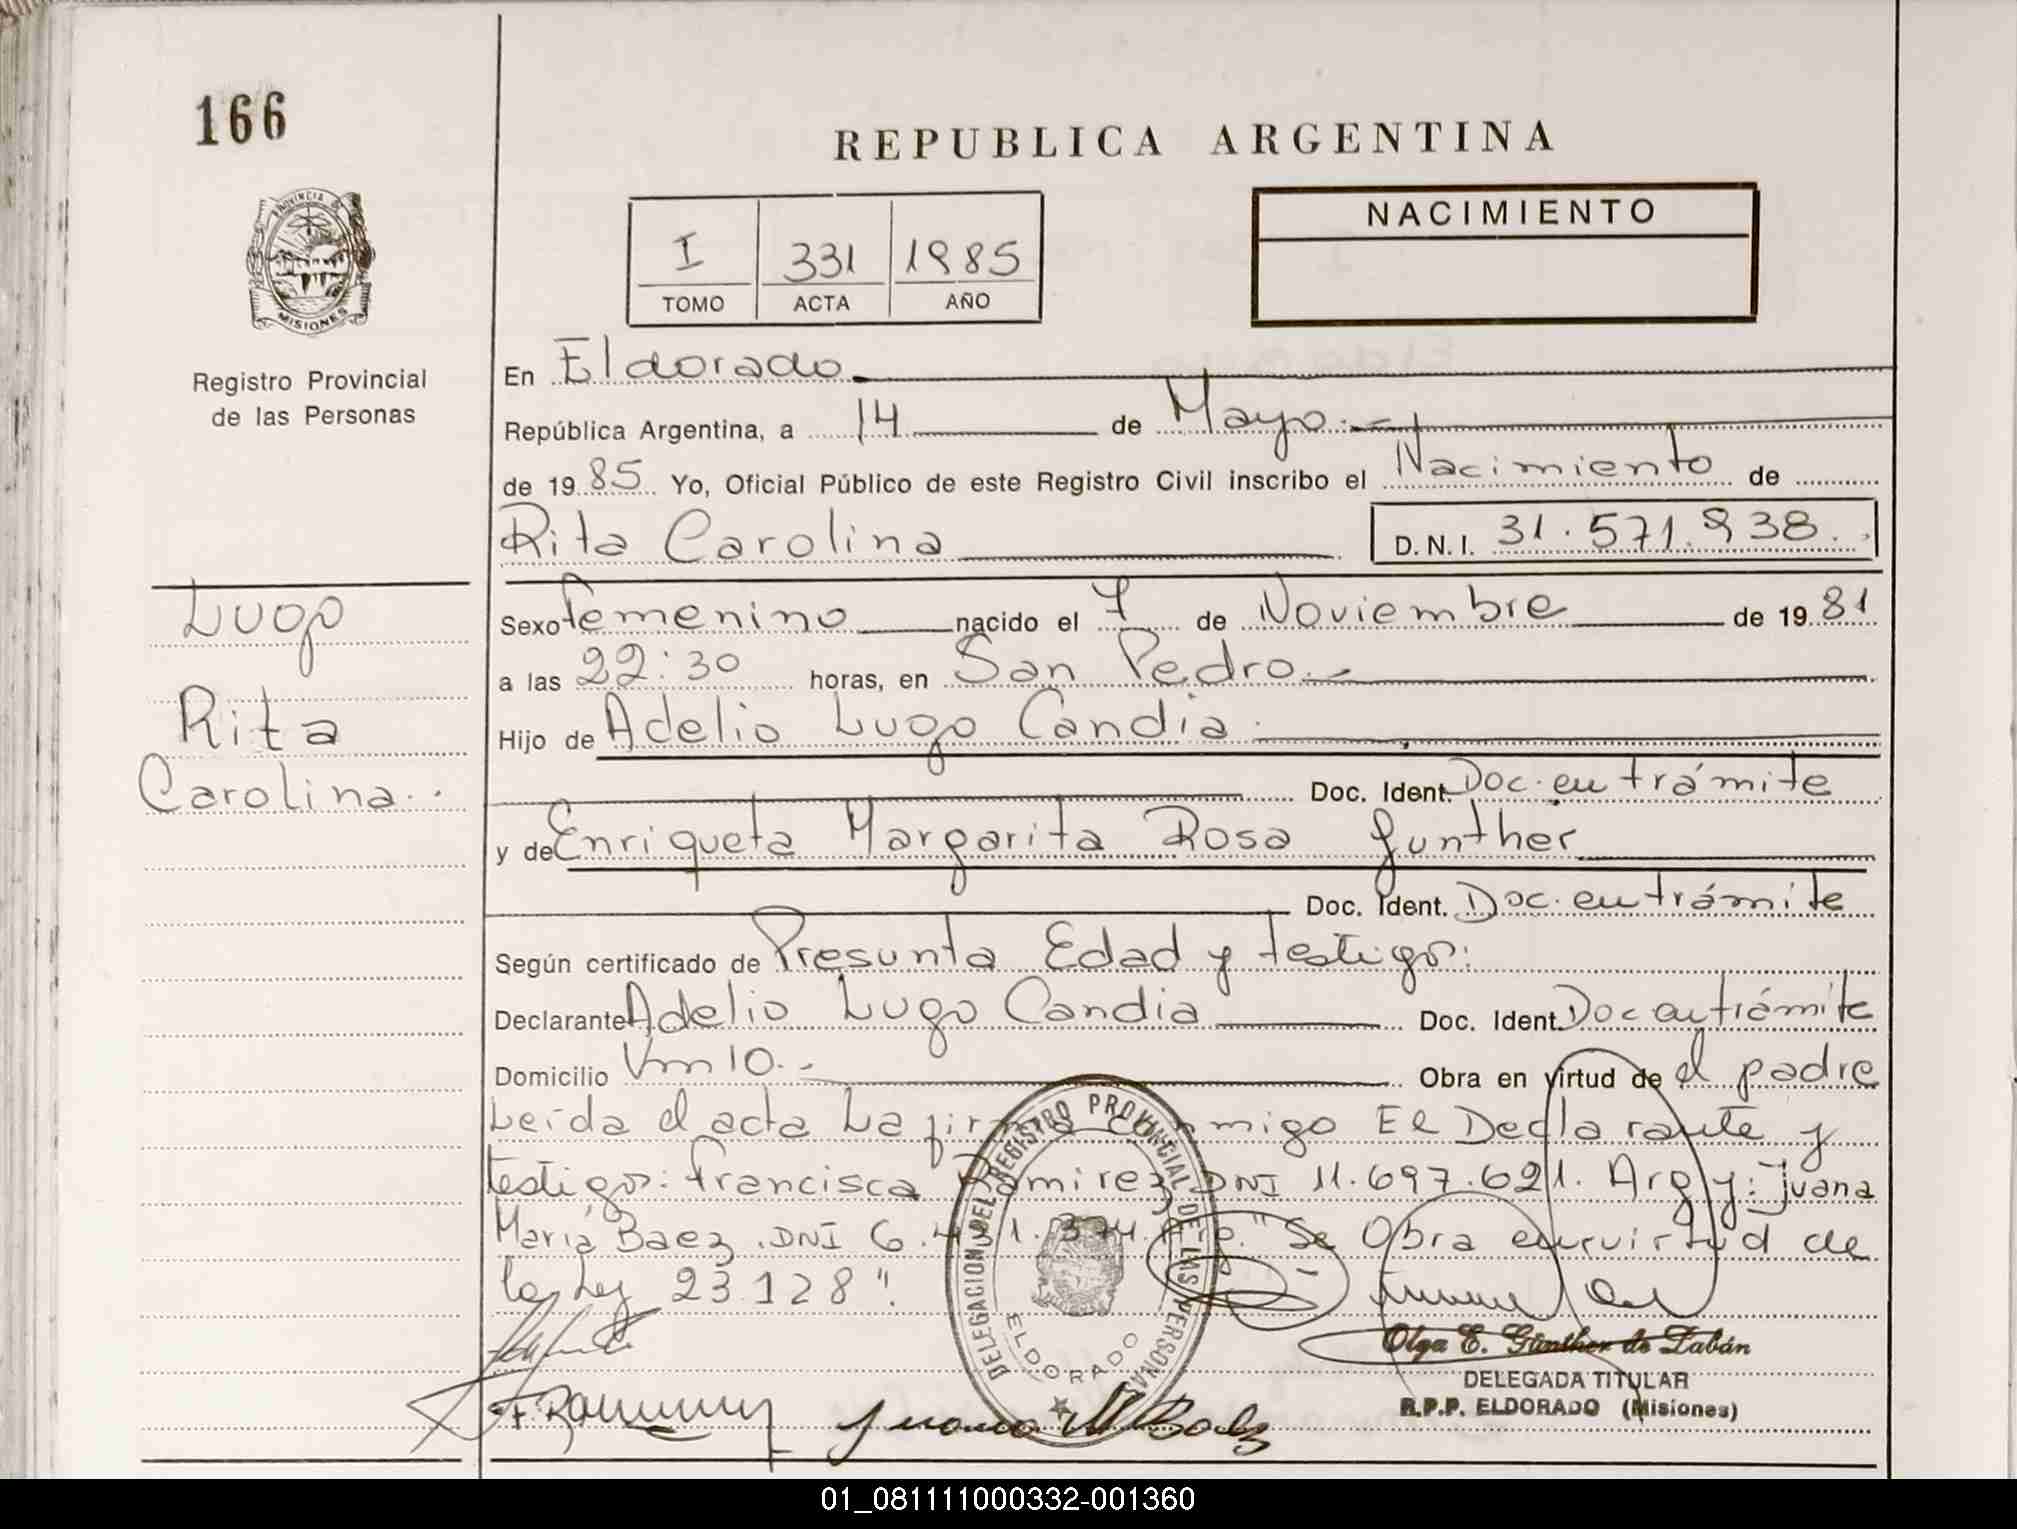 166
REPUBLICA ARGENTINA
PROVINCIA DE
MISIONES
Registro Provincial
de las Personas
I 331 1985
TOMO ACTA AÑO
NACIMIENTO
En Eldorado
República Argentina, a 14 de Mayo.-
de 1985 Yo, Oficial Público de este Registro Civil inscribo el Nacimiento de
Rita Carolina D.N.I. 31.571.938.
Lugo
Rita
Carolina..
Sexo Femenino nacido el 7 de Noviembre de 1981
a las 22:30 horas, en San Pedro.-
Hijo de Adelio Lugo Candia.
Doc. Ident. Doc. en trámite
y de Enriqueta Margarita Rosa Gunther
Doc. Ident. Doc. en trámite
Según certificado de Presunta Edad y testigos:
Declarante Adelio Lugo Candia Doc. Ident. Doc en trámite
Domicilio Km 10.- Obra en virtud de el padre
Leída el acta La firma conmigo El Declarante y
testigos: Francisca Ramirez DNI 11.697.621. Arg y: Juana
María Baez. DNI "Se Obra en virtud de
la Ley 23.128".
DELEGACION DEL REGISTRO PROVINCIAL DE LAS PERSONAS
ELDORADO
F. Ramirez
Juana M Baez
Olga E. Günther de Zabán
DELEGADA TITULAR
R.P.P. ELDORADO (Misiones)
01_081111000332-001360